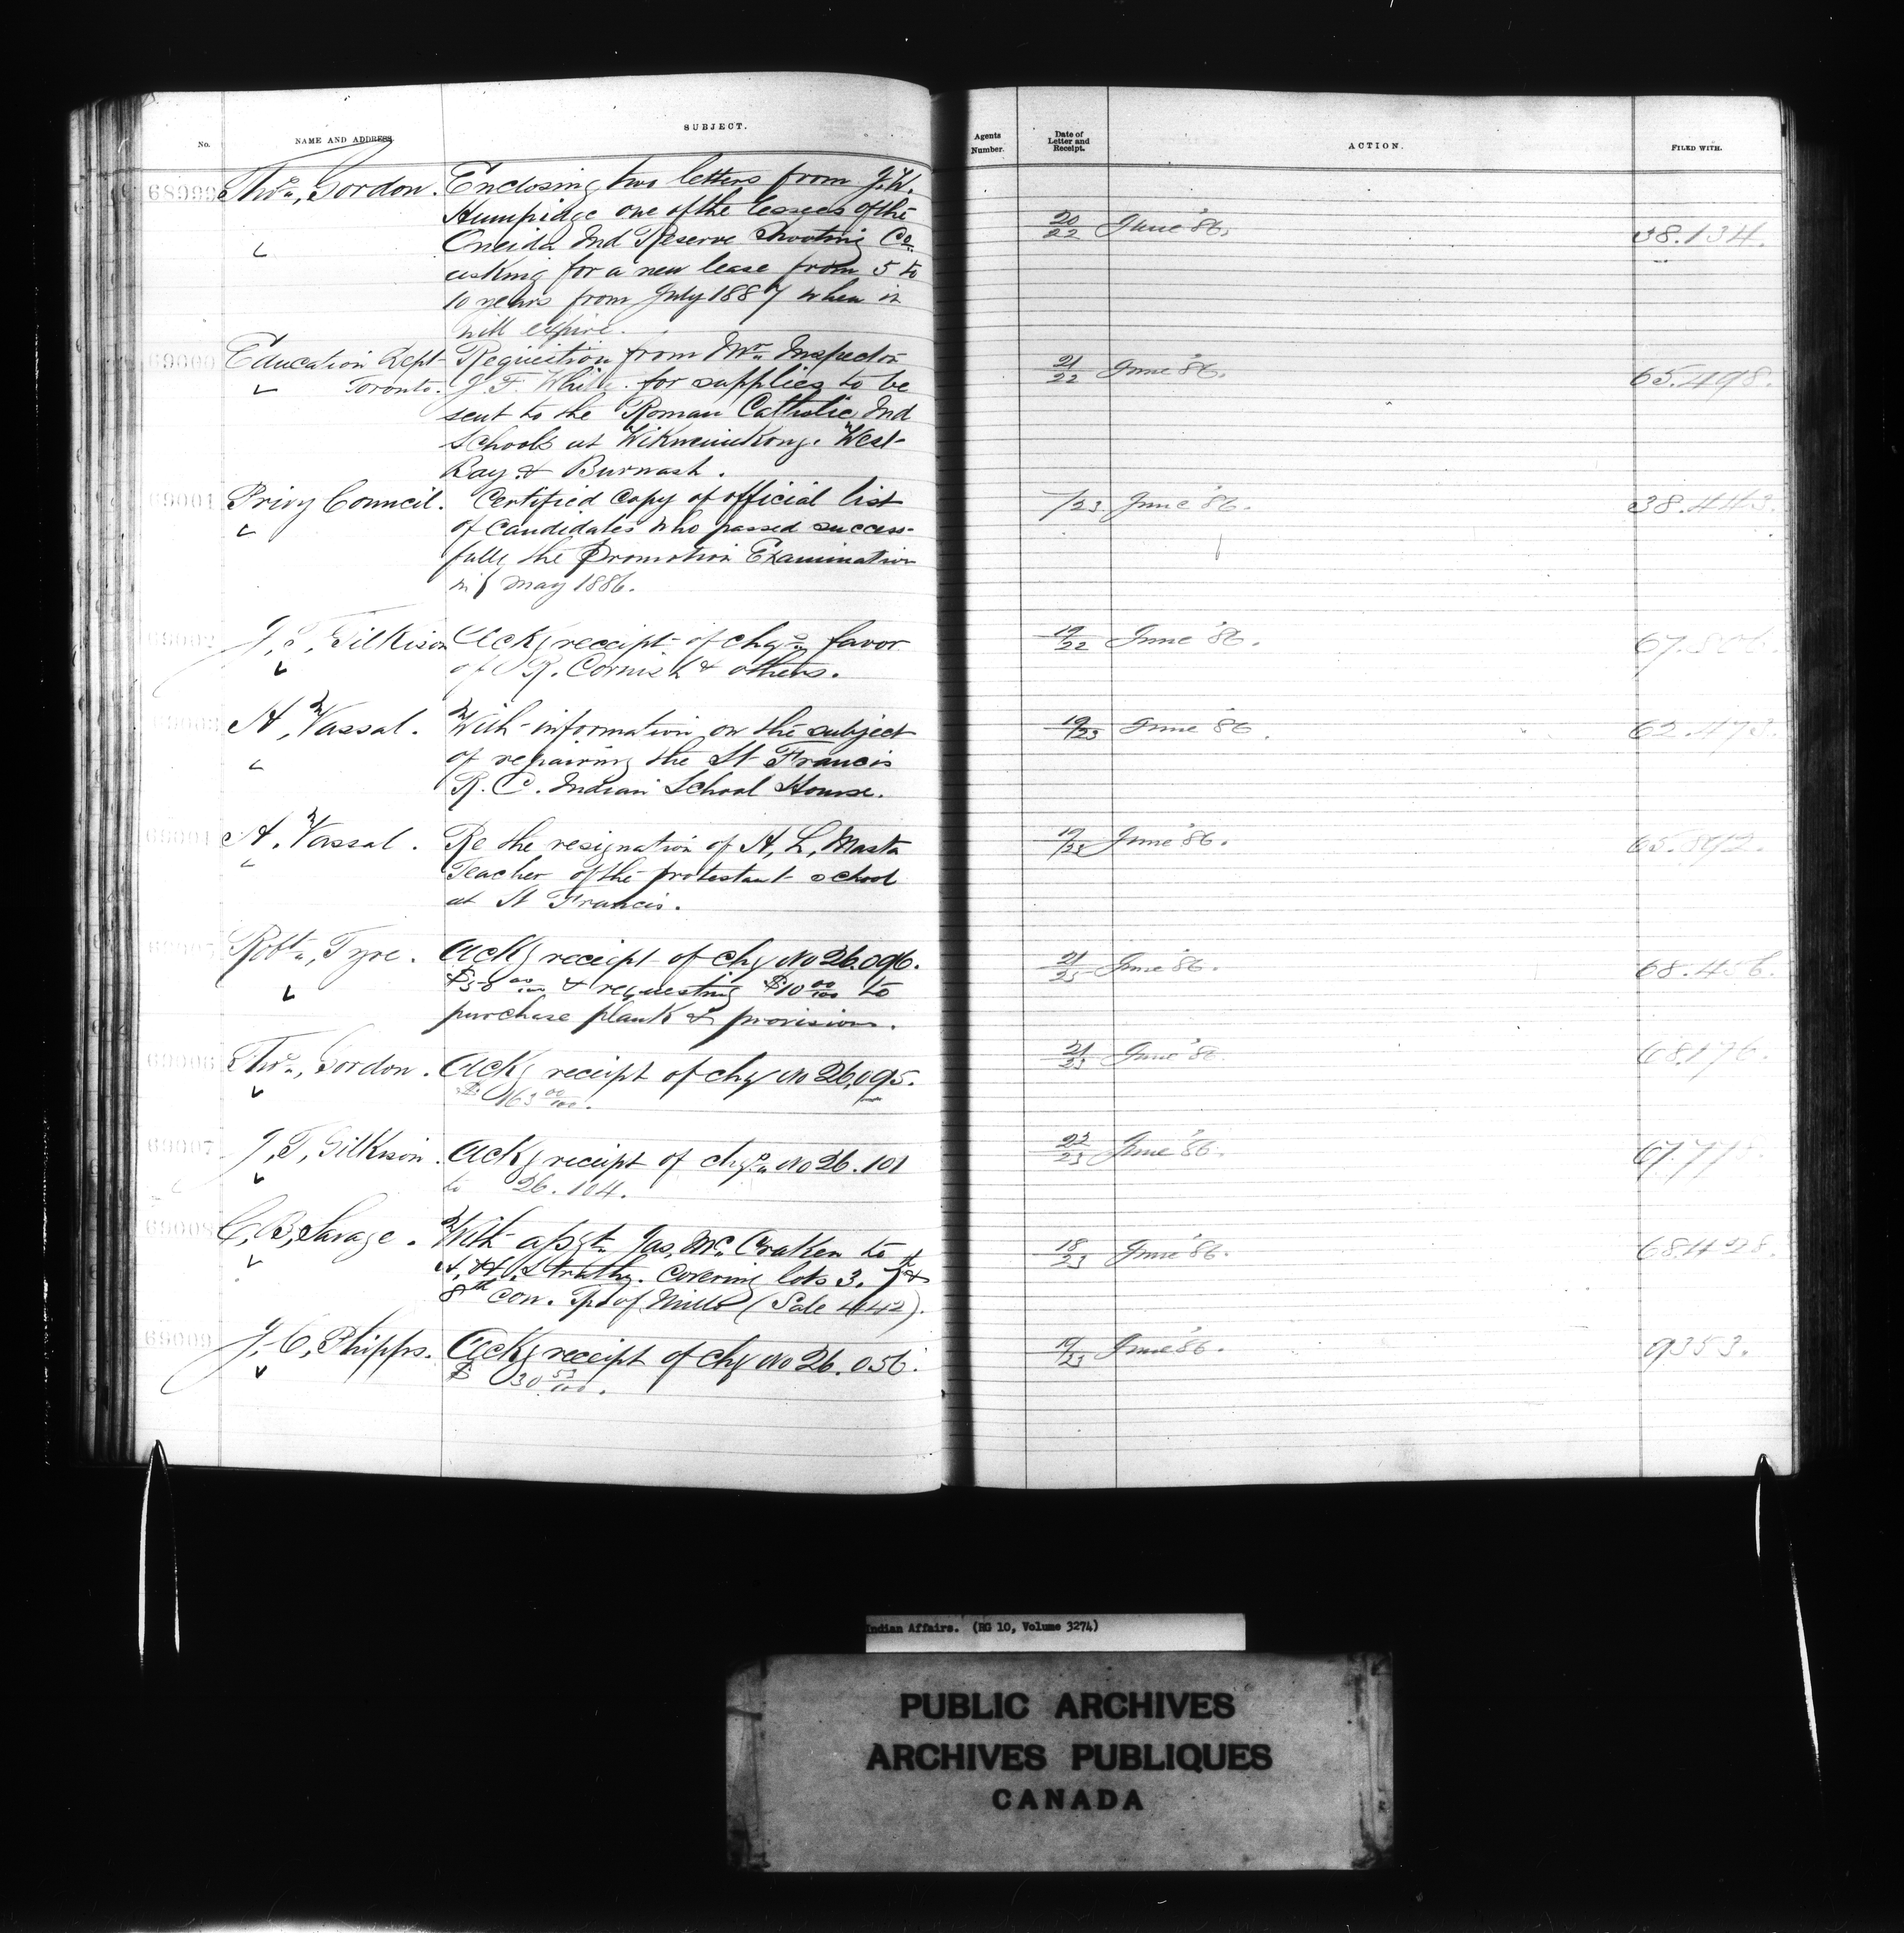 No.
NAME AND ADDRESS.
SUBJECT.
Agents Number.
Date of Letter and Receipt.
ACTION.
FILED WITH.
68999 Thos., Gordon. Enclosing two letters from J. W. 20/22 June '86. 38.134.
Humpidge one of the lessees of the
Oneida Ind Reserve Shooting Co
asking for a new lease from 5 to
10 years from July 1887 when it
will expire.
69000 Education Dept Requisition from Mr. Inspector 21/22 June '86. 65.498.
Toronto. J. F. White for supplies to be
sent to the Roman Catholic Ind
Schools at Wikwemikong. West
Bay & Burwash.
69001 Privy Council. Certified Copy of official list /23 June '86. 38.443.
of Candidates who passed success-
fully the Promotion Examination
in May 1886.
69002 J, T, Gilkison Ackg receipt of chqs favor 19/22 June '86.
of R. Cornish & others.
69003 A, Vassal. With information on the subject 19/23 June '86. 62.473.
of repairing the St Francis
R. C. Indian School House.
69004 A, Vassal. Re the resignation of A, L, Masta 19/23 June '86. 65.892.
Teacher of the protestant school
at St Francis.
69005 Robt., Tyre. Ackg receipt of chq No 26.096. 21/23 June '86. 68.456.
$58 00/100 & requesting $10 00/100 to
purchase plank & provisions.
69006 Thos., Gordon. Ackg receipt of chq No 26,095. 21/23 June '86. 68.176.
$163 00/100.
69007 J, T, Gilkison. Ackg receipt of chqs No 26.101 22/23 June '86.
to 26.104.
69008 C, B, Savage. With assgt. Jas, McCraken to 18/23 June '86. 68428.
A, & H, Strathy. Covering lots 3. 7th &
8th Con. Tp of Mills (Sale 4442).
69009 J, C, Phipps. Ackg receipt of chq No 26.056. 19/23 June '86. 9353.
$30 53/100.
Indian Affairs. (RG 10, Volume 3274)
PUBLIC ARCHIVES
ARCHIVES PUBLIQUES
CANADA